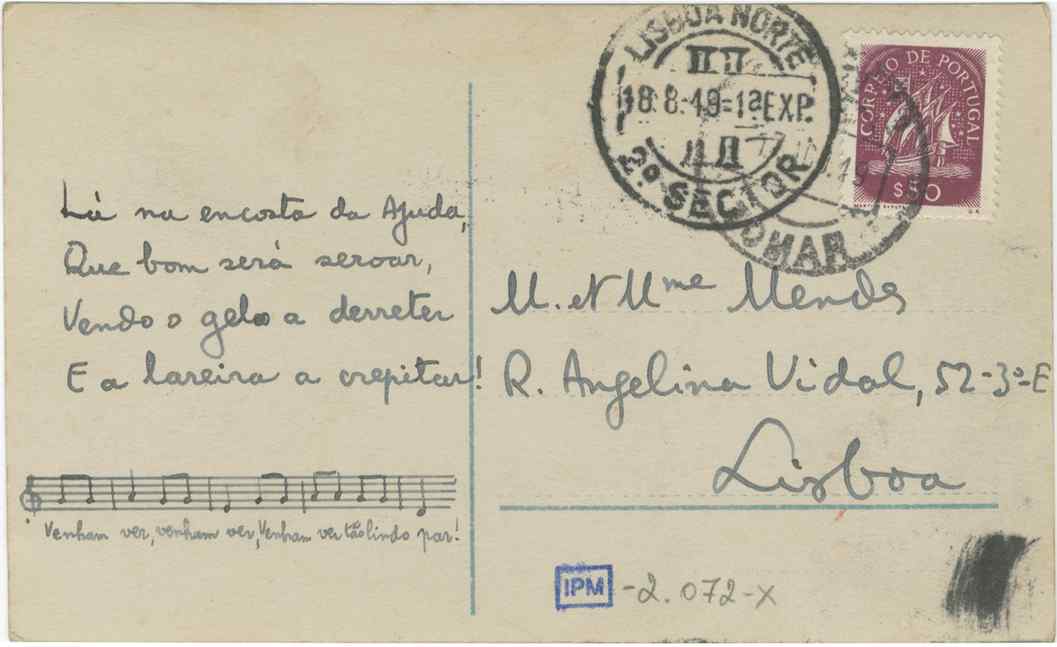 LISBOA NORTE
18.8.49=1ªEXP.
2º SECTOR
OMAR
CORREIO DE PORTUGAL
$50
Lá na encosta da Ajuda,
Que bom será seroar,
Vendo o gelo a derreter
E a lareira a crepitar!
Venham ver, venham ver, Venham ver tão lindo par!
M. et Mme Mendes
R. Angelina Vidal, 52-3º-E
Lisboa
IPM -2.072-X